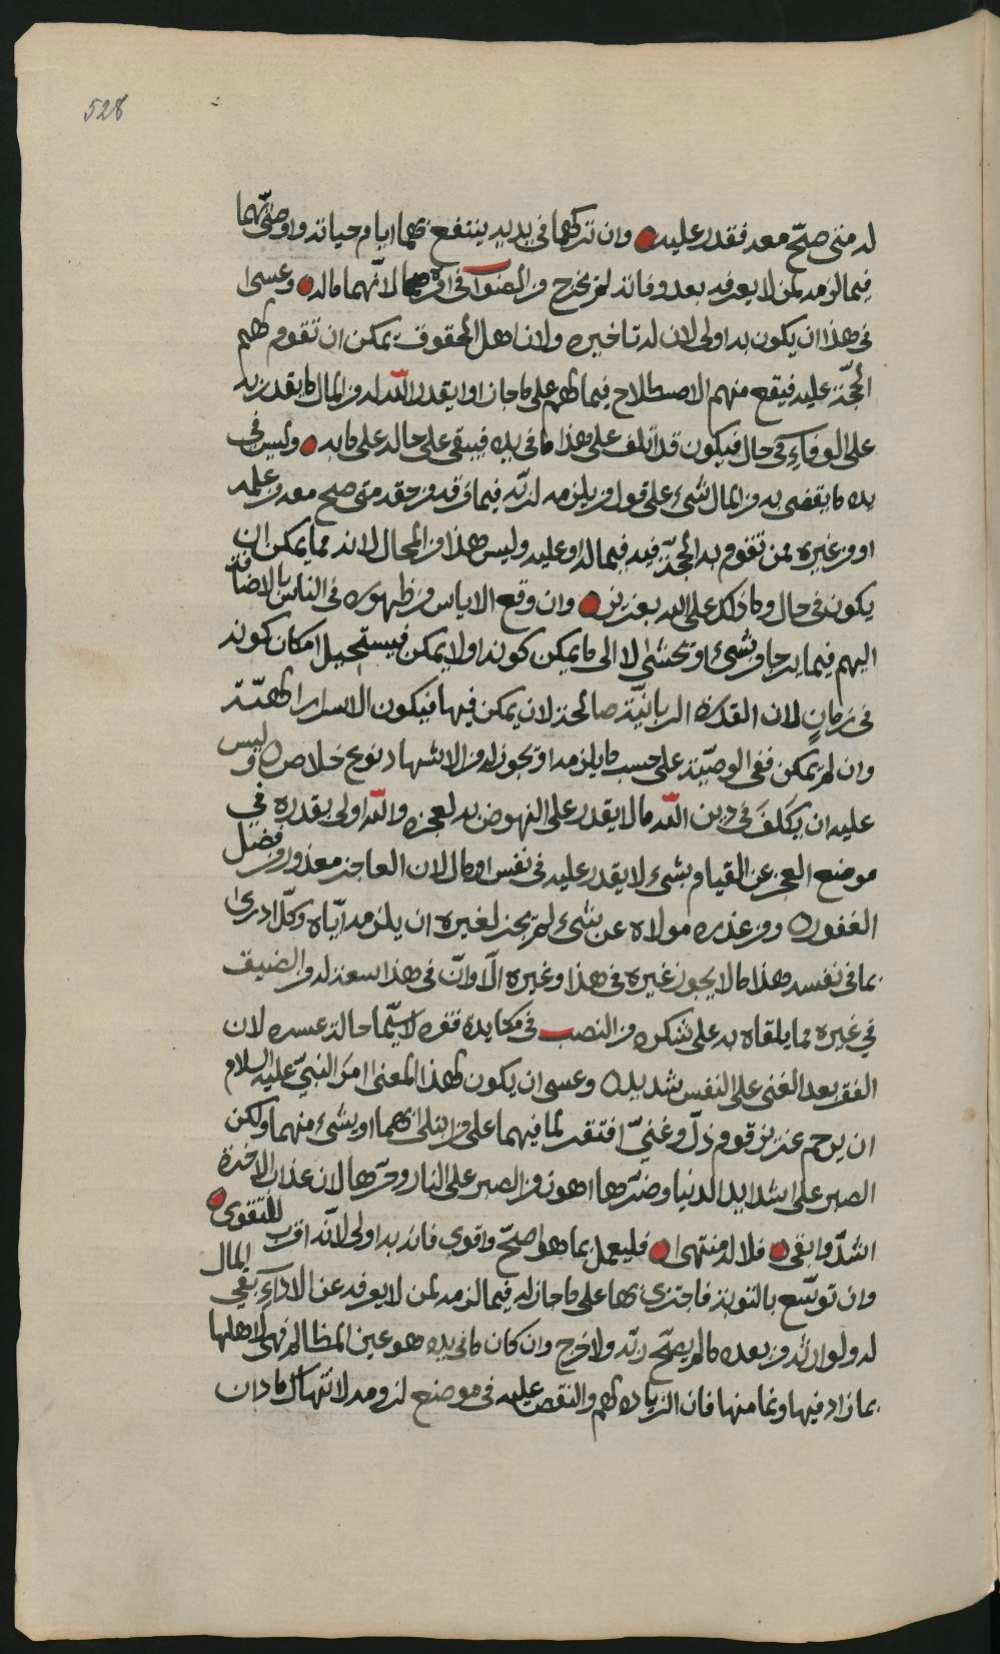 528
له متى صحّ معه فقدر عليه وان تركهما في يديه ينتفع بهما ايام حياته واوصى بهما
فيما لزمه لمن لا يعرفه بعد وفاته لم يخرج من الصواب في لانهما ماله وعسى
في هذا ان يكون به اولى لان له تاخيره ولان اهل الحقوق يمكن ان تقوم لهم
الحجّة عليه فيقع منهم الاصطلاح فيما لهم على ما جاز او يقدر الله له من المال ما يقدر به
على الوفاء في حال فيكون قد اتلف على هذا ما في يده فيبقى على حاله على ما به وليس في
يده ما يقضى به من المال شيء على قول من يلزمه لربّه فيما فرقه من حقه متى صح معه من علمه
او من غيره ممن تقوم به الحجّة فيه فيما له او عليه وليس هذا من المحال لانه مما يمكن ان
يكون في حال وما ذلك على الله بعزيز وان وقع الاياس من ظهوره في الناس بالاضافة
اليهم فيما يرجا من شيء او يخشى لا الى ما يمكن كونه او لا يمكن فيستحيل امكان كونه
في زمان لان القدرة الربانيّة صالحة لان يمكن فيها فيكون الاسرار الهيّة
وان لم يمكن ففي الوصيّة على حسب ما يلزمه او يجوز له من الاشهاد نوع خلاص وليس
عليه ان يكلّف في دين الله ما لا يقدر على النهوض به لعجزه والله اولى بقدره في
موضع العجز عن القيام بشيء لا يقدر عليه في نفس او مال لان العاجز معذور من فضل
الغفور ومن عذره مولاه عن شيء لم يجز لغيره ان يلزمه ايّاه وكلّ ادرى
بما في نفسه وهذا ما لا يجوز غيره في هذا وغيره الّا وانّ في هذا سعة له والضيق
في غيره مما يلقاه به على شكره من النصب في مكايدة فقره لا سيّما حالة عسره لان
الفقر بعد الغنى على النفس شديد وعسى ان يكون لهذا المعنى امر النبيّ عليه السلام
ان يرحم عزيز قوم ذلّ وغنيّ افتقر لما فيهما على من ابتلى بهما او بشيء منهما ولكن
الصبر على شدايد الدنيا وضرّها اهون من الصبر على النار وحرّها لان عذاب الاخرة
اشدّ وابقى فلا له منتهى فليعمل بما هو اصحّ واقوى فانه به اولى لانّه اقرب للتقوى
وان توسّع بالتوبة فاجتزى بها على ما جاز له فيما لزمه لمن لا يعرفه عن الاداء بقي المال
له ولوارثه من بعده ما لم يصحّ ربّه ولا حرج وان كان ما في يده هو عين المظالم فهي لاهلها
بما زاد فيها ونما منها فان الزيادة لهم والنقص عليه في موضع لزومه لانها مال ما دان